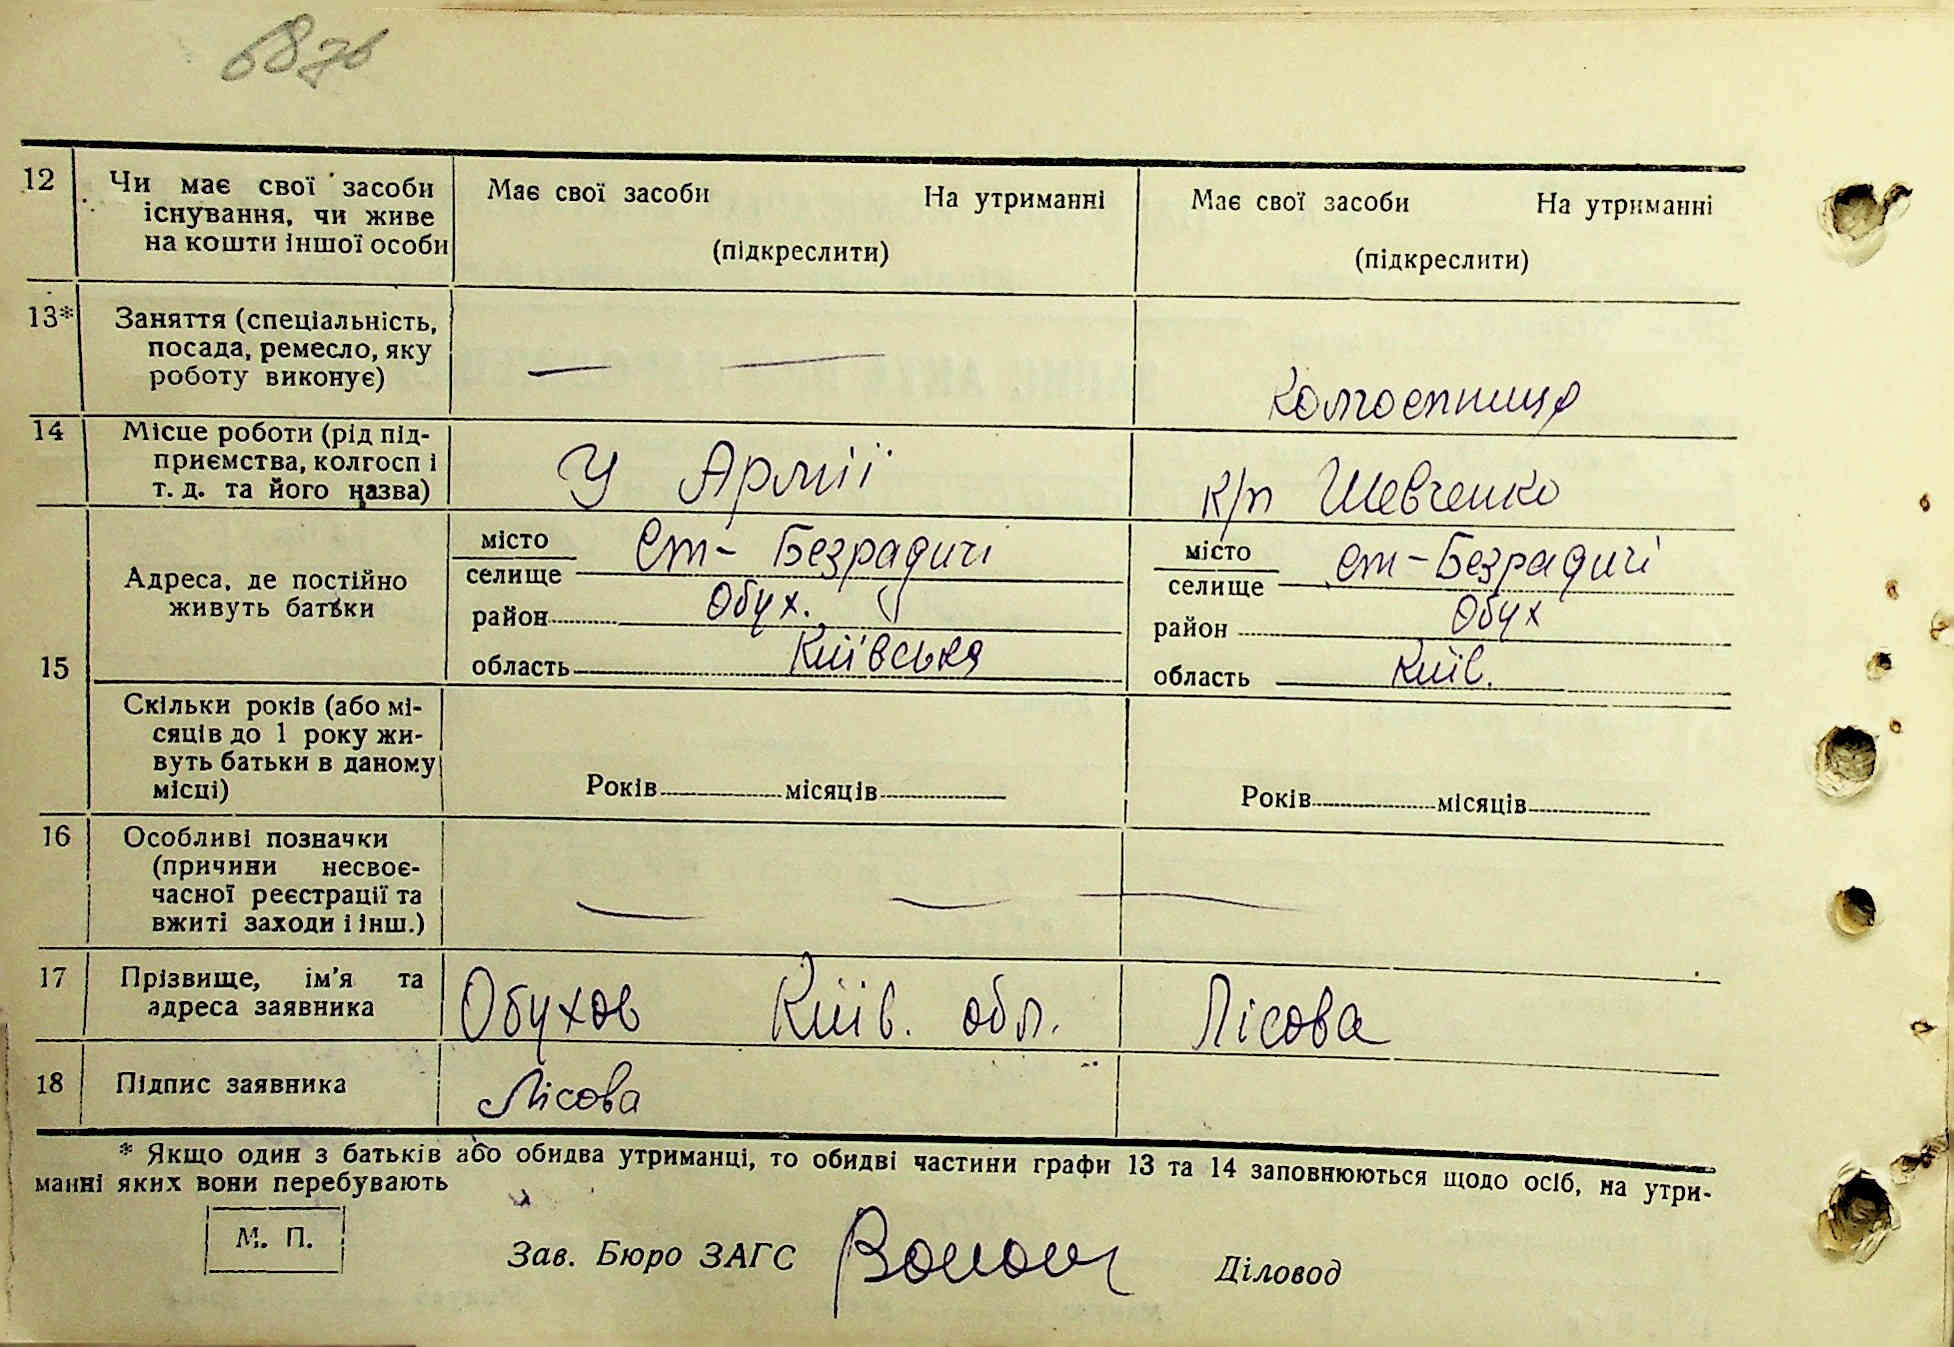 68 зв
12 Чи має свої засоби існування, чи живе на кошти іншої особи
Має свої засоби На утриманні
(підкреслити)
Має свої засоби На утриманні
(підкреслити)
13* Заняття (спеціальність,
посада, ремесло, яку
роботу виконує)
— —
Колгоспниця
14 Місце роботи (рід під-
приємства, колгосп і
т. д. та його назва)
У Армії
к/п Шевченко
15
Адреса, де постійно
живуть батьки
місто
селище Ст-Безрадичі
район Обух.
область Київська
місто
селище Ст-Безрадичі
район Обух
область Київ.
Скільки років (або мі-
сяців до 1 року жи-
вуть батьки в даному
місці)
Років місяців
Років місяців
16 Особливі позначки
(причини несвоє-
часної реєстрації та
вжиті заходи і інш.)
— — —
17 Прізвище, ім'я та
адреса заявника
Обухов Київ. обл. Лісова
18 Підпис заявника
Лісова
* Якщо один з батьків або обидва утриманці, то обидві частини графи 13 та 14 заповнюються щодо осіб, на утри-
манні яких вони перебувають
М. П.
Зав. Бюро ЗАГС
Діловод